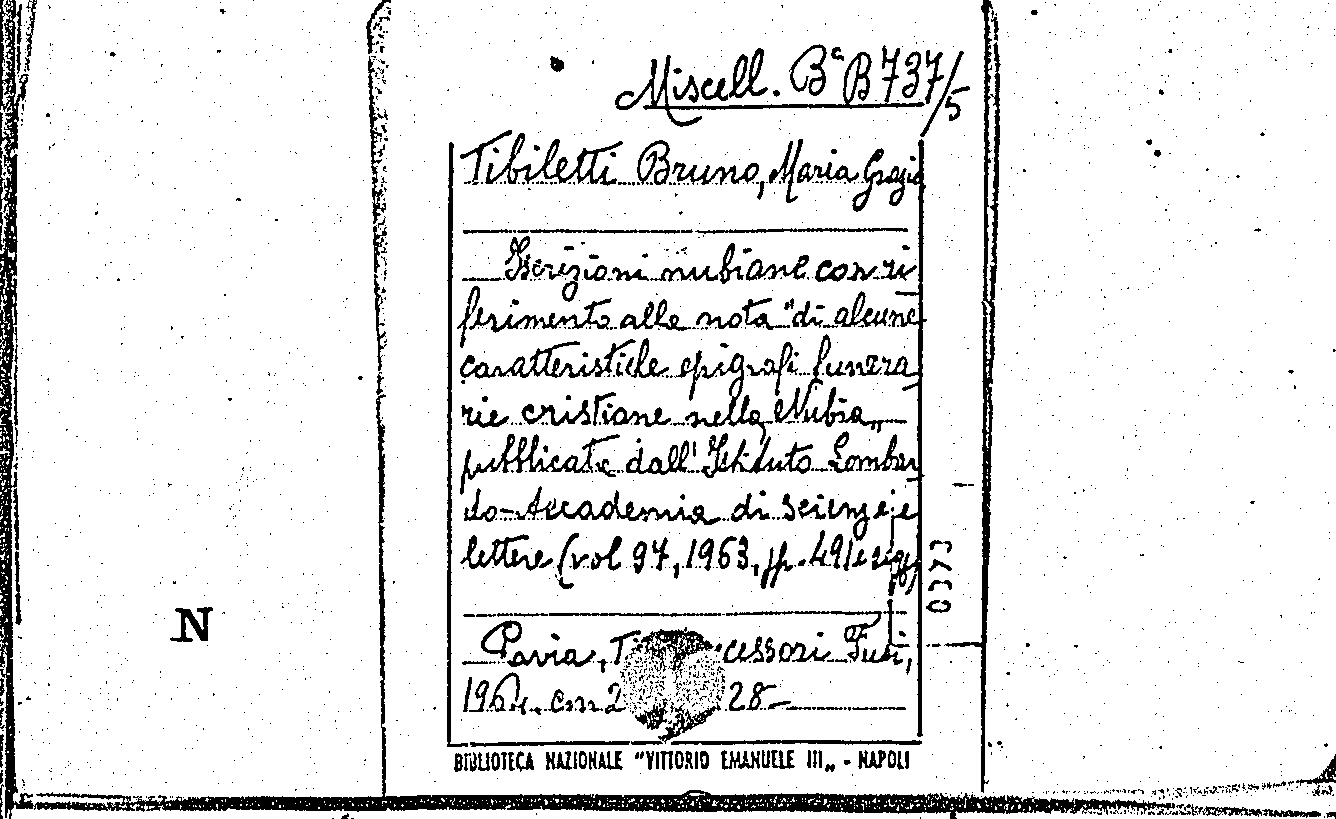 Miscell. Bª B 737/5
Tibiletti Bruno, Maria Grazia
Iscrizioni nubiane con ri
ferimento alle nota "di alcune
caratteristiche epigrafi funera
rie cristiane nella Nubia„
pubblicate dall'Istituto Lombar
do-Accademia di scienze e
lettere (vol 97, 1963, pp. 491 e sigg)
0373
Pavia, cessori Fusi,
1964. cm 2 28-
BIBLIOTECA NAZIONALE "VITTORIO EMANUELE III„ - NAPOLI
N